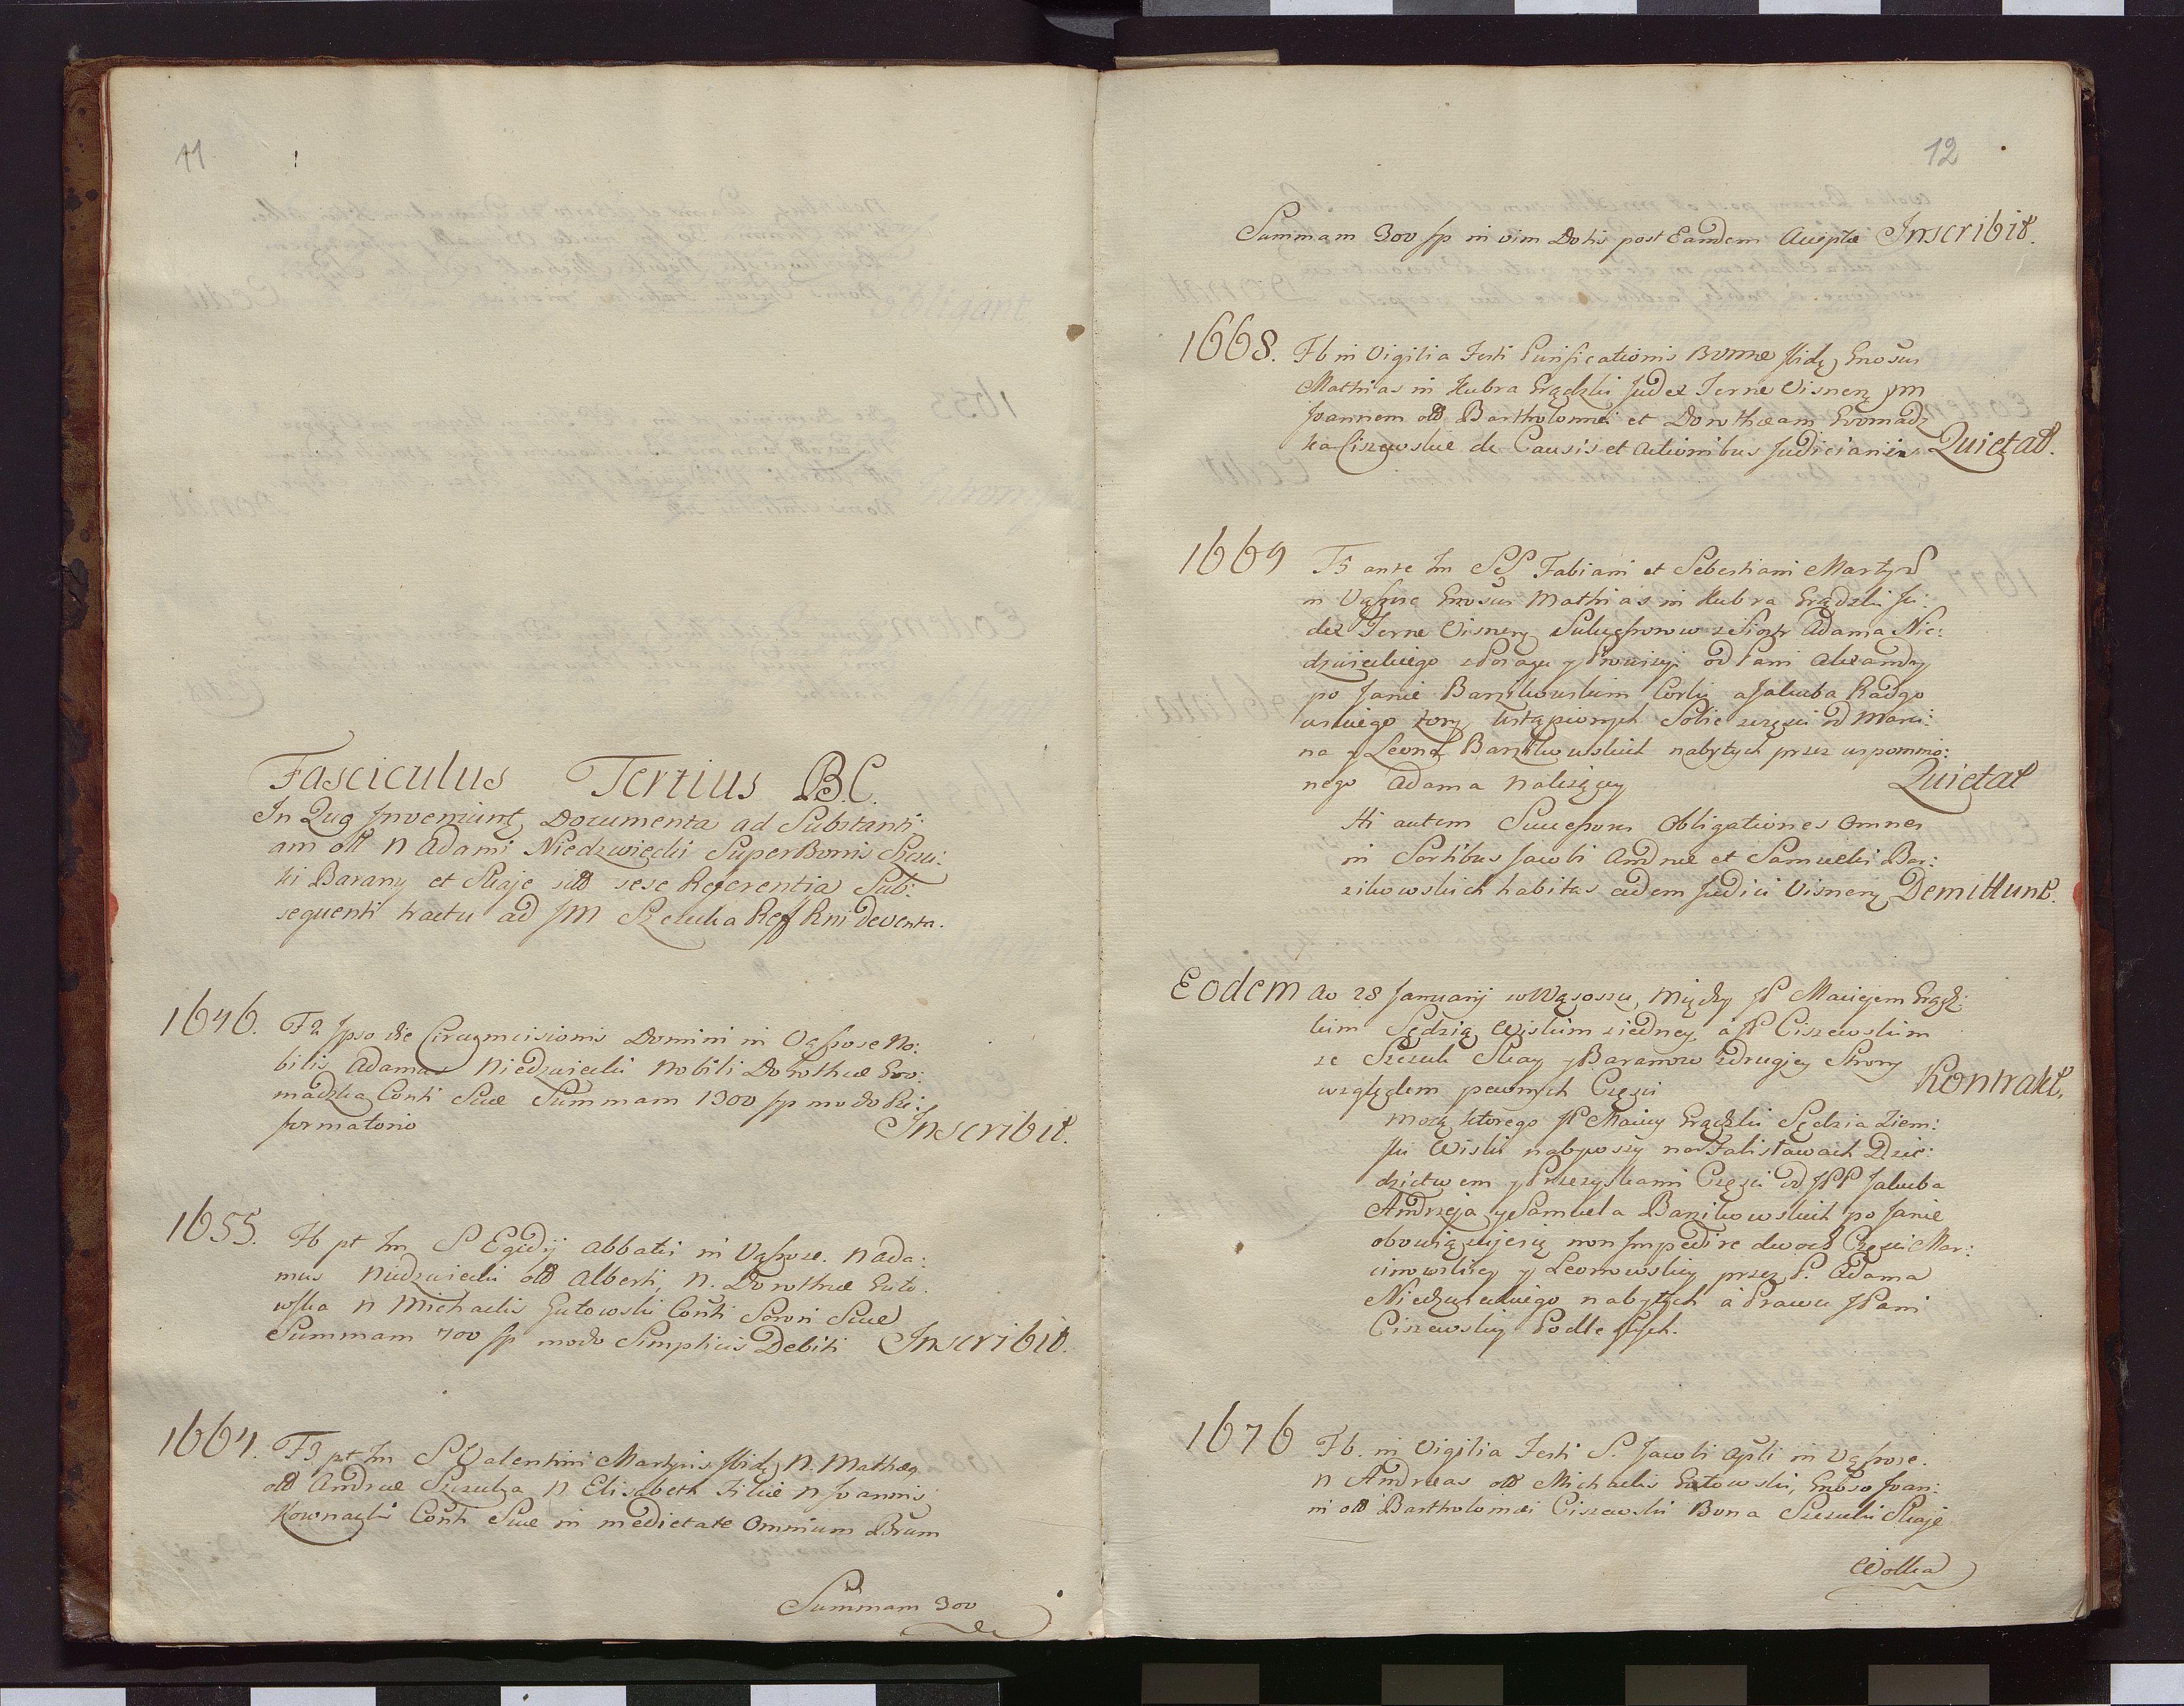 11
Fasciculus Tertius B.C.
In Quo Inveniunt Documenta ad Substanti:
am olt N Adami Niedzwiecki Super Bonis Szczu:
ki Barany et Skaje sitt sese Referentia Sub:
sequenti tractu ad JM Szczuka Reff Rni deventa.
1646. F2 Ipso die Circumcisionis Domini in Vąssose No:
bilis Adamus Niedzwiecki Nobili Dorotheæ Gro:
madzka Conti Suæ Summam 1300 fp modo Re:
formatorio Inscribit.
1655. Fb pt fm S Egidij Abbatis in Vąssose. N Ada:
mus Niedzwiecki olt Alberti, N. Dorotheæ Guto:
wska N Michaelis Gutowski Conti Sorori Suæ
Summam 700 fp modo Simplicis Debiti Inscribit.
1664. F3 pt fm S Valentini Martyris Ibidę N. Mathæus
olt Andreæ Szczuka N Elisabeth Filiæ N Joannis
Kownacki Conti Suæ in medietate Omnium Brum
Summam 300
12
Summam 300 fp in vim Dotis post Eandem Acceptæ Inscribit.
1668. Fb in Vigilia Festi Purificationis BVMæ Ibidę, Gnosus
Mathias in Kubra Grądzki Judex Terræ Visneñ JM
Joannem olt Bartholomei et Dorotheam Gromadz
ka Ciszewskie de Causis et Actionibus Judiciarijs Quietat.
1669 F3 ante fm SS Fabiani et Sebestiani Martyr
in Vąssose Gnosus Mathias in Kubra Grądzki Ju:
dex Terræ Visneñ Sukcessorow z Siostr Adama Nie:
dzwieckiego z Posagu y Prowizyi od Pani Alexandry
po Janie Barzikowskim Corki a Jakuba Radgo
wskiego Zony Ustąpionych Sobie częsci od Marci:
na y Leona Barzikowskich nabytych przez wspomnio:
nego Adama Należący Quietat
Hi autem Successores Obligationes Omnes
in Sortibus Jacobi Andreæ et Samuelis Bar:
zikowskich habitas eidem Judici Visneñ Demittunt.
Eodem Ao 28 Januarij w Wąsoszu, Między JP Maciejem Grądz:
kim Sędzią Wiskim z iedney, a JP Ciszewskim
ze Szczuk Skay y Baranow z drugiey Strony
względem pewnych Częsci Kontrakt.
Mocą ktorego JP Maciey Grądzki Sędzia Ziem:
ski Wiski nabywszy na Falisławach Dzie:
dzictwem y Przezyskami Częsci od JPP Jakuba
Andrzeja y Samuela Barzikowskich po Janie
obowiązuije się non Impedire dwoch Częsci Mar:
cinowskiey y Leonowskiey przez P. Adama
Niedzwieckiego nabytych a Prawu JPani
Ciszewskiy Podległych.
1676 Fb. in Vigilia Festi S. Jacobi Apli in Vąssose.
N Andreas olt Michaelis Gutowski, Gnoso Joan:
ni olt Bartholomei Ciszewski Bona Szczuki Skaje
Wolka